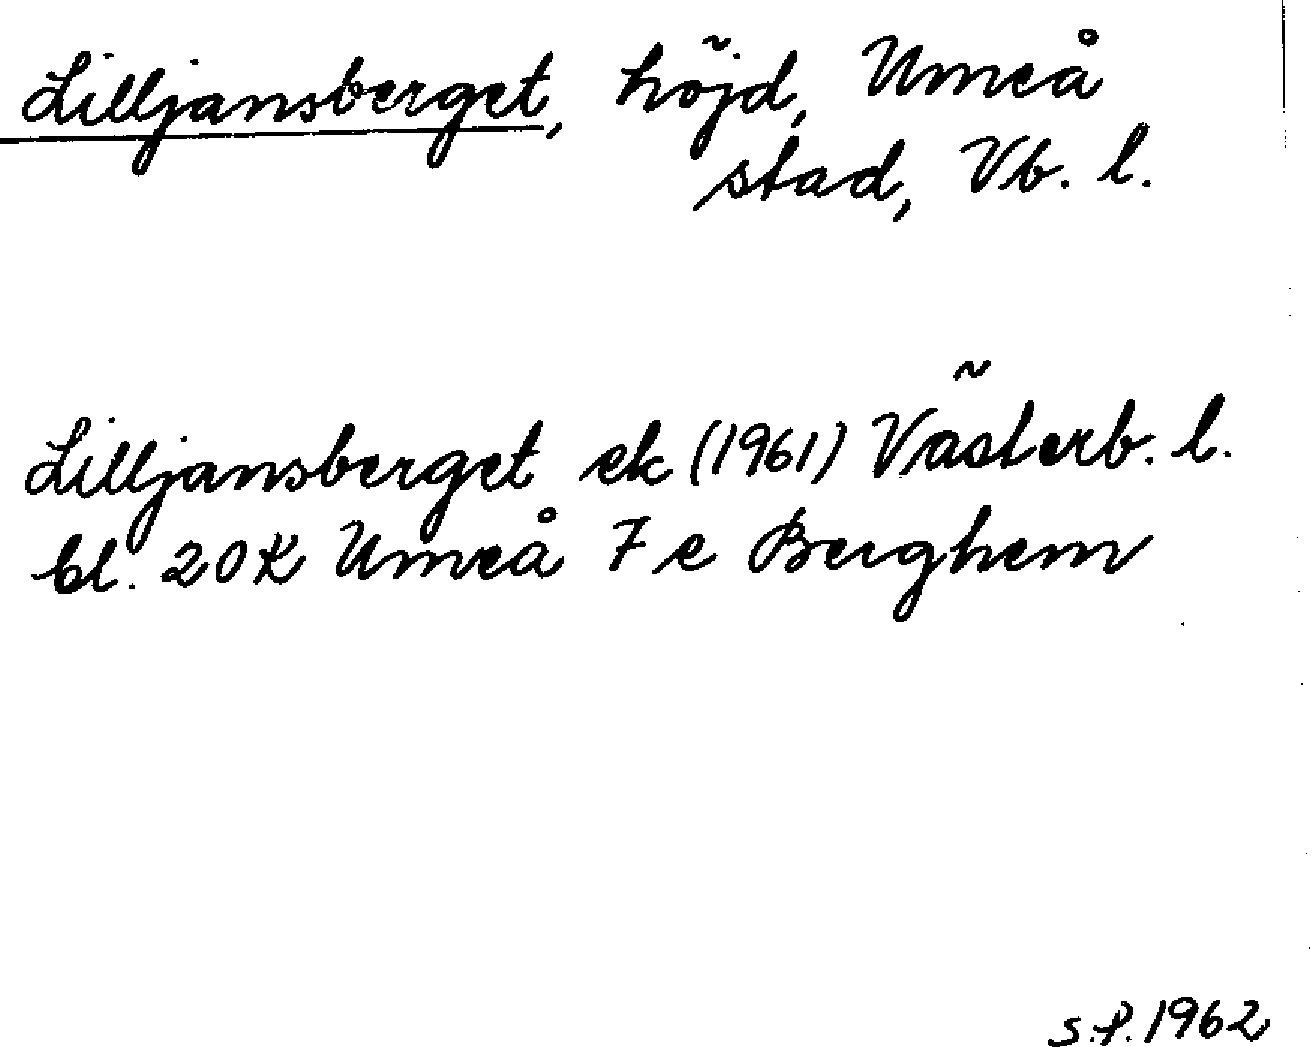 Lilljansberget, höjd, Umeå
stad, Vb. l.
Lilljansberget ek (1961) Västerb. l.
bl. 20K Umeå 7e Berghem
S.P. 1962